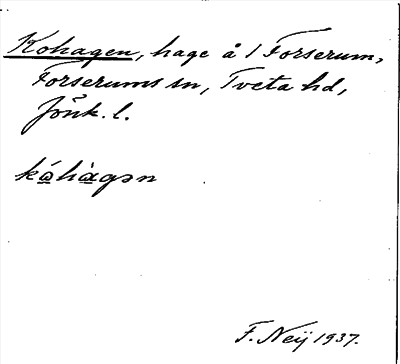 Kohagen, hage å 1 Forserum,
Forserums sn, Tveta hd,
Jönk. l.
kó̲hà̲gən
F. Neij 1937.